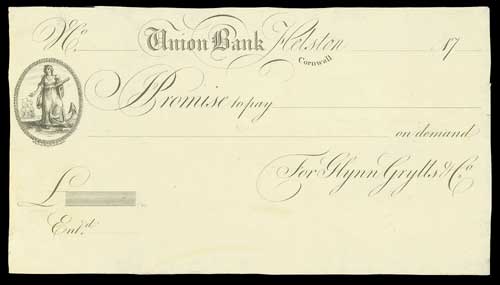 No. Union Bank Helston 17
Cornwall
I Promise to pay
on demand
For Glynn Grylls & Co.
£
Ent.d